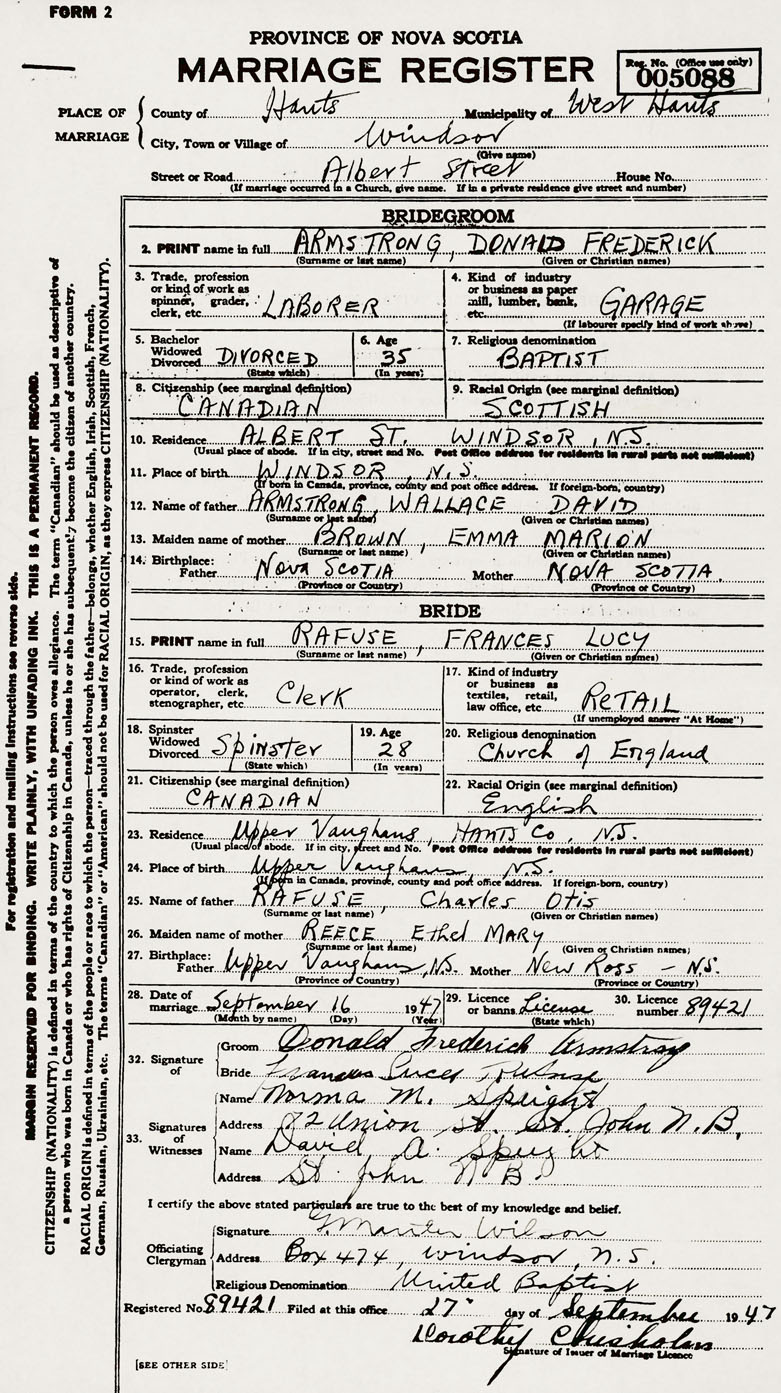 FORM 2
PROVINCE OF NOVA SCOTIA
MARRIAGE REGISTER
Reg. No. (Office use only)
005088
PLACE OF MARRIAGE
County of Hants Municipality of West Hants
City, Town or Village of Windsor
(Give name)
Street or Road Albert Street House No.
(If marriage occurred in a Church, give name. If in a private residence give street and number)
BRIDEGROOM
2. PRINT name in full ARMSTRONG, DONALD FREDERICK
(Surname or last name) (Given or Christian names)
3. Trade, profession or kind of work as spinner, grader, clerk, etc. LABORER
4. Kind of industry or business as paper mill, lumber, bank, etc. GARAGE
(If labourer specify kind of work above)
5. Bachelor Widowed Divorced DIVORCED
(State which)
6. Age 35
(In years)
7. Religious denomination
BAPTIST
8. Citizenship (see marginal definition)
CANADIAN
9. Racial Origin (see marginal definition)
SCOTTISH
10. Residence ALBERT ST. WINDSOR, N.S.
(Usual place of abode. If in city, street and No. Post Office address for residents in rural parts not sufficient)
11. Place of birth WINDSOR, N.S.
(If born in Canada, province, county and post office address. If foreign-born, country)
12. Name of father ARMSTRONG, WALLACE DAVID
(Surname or last name) (Given or Christian names)
13. Maiden name of mother BROWN, EMMA MARION
(Surname or last name) (Given or Christian names)
14. Birthplace: Father NOVA SCOTIA Mother NOVA SCOTIA.
(Province or Country) (Province or Country)
BRIDE
15. PRINT name in full RAFUSE, FRANCES LUCY
(Surname or last name) (Given or Christian names)
16. Trade, profession or kind of work as operator, clerk, stenographer, etc. Clerk
17. Kind of industry or business as textiles, retail, law office, etc. RETAIL
(If unemployed answer "At Home")
18. Spinster Widowed Divorced Spinster
(State which)
19. Age 28
(In years)
20. Religious denomination
Church of England
21. Citizenship (see marginal definition)
CANADIAN
22. Racial Origin (see marginal definition)
English
23. Residence Upper Vaughans, HANTS Co, N.S.
(Usual place of abode. If in city, street and No. Post Office address for residents in rural parts not sufficient)
24. Place of birth Upper Vaughans, N.S.
(If born in Canada, province, county and post office address. If foreign-born, country)
25. Name of father RAFUSE, Charles Otis
(Surname or last name) (Given or Christian names)
26. Maiden name of mother REECE, Ethel MARY
(Surname or last name) (Given or Christian names)
27. Birthplace: Father Upper Vaughans, N.S. Mother New Ross - N.S.
(Province or Country) (Province or Country)
28. Date of marriage September 16 1947
(Month by name) (Day) (Year)
29. Licence or banns License
(State which)
30. Licence number 89421
32. Signature of
Groom Donald Frederick Armstrong
Bride Frances
33. Signatures of Witnesses
Name Norma M. Speight
Address 72 Union St. St. John N.B.
Name David A. Speight
Address St. John N.B.
I certify the above stated particulars are true to the best of my knowledge and belief.
Officiating Clergyman
Signature G. Wilson
Address Box 474, Windsor, N.S.
Religious Denomination United Baptist
Registered No. 89421 Filed at this office 27 day of September 1947
Dorothy Chisholm
Signature of Issuer of Marriage Licence
[SEE OTHER SIDE]
For registration and mailing instructions see reverse side.
MARGIN RESERVED FOR BINDING. WRITE PLAINLY, WITH UNFADING INK. THIS IS A PERMANENT RECORD.
CITIZENSHIP (NATIONALITY) is defined in terms of the country to which the person owes allegiance. The term "Canadian" should be used as descriptive of
a person who was born in Canada or who has rights of Citizenship in Canada, unless he or she has subsequent'y become the citizen of another country.
RACIAL ORIGIN is defined in terms of the people or race to which the person—traced through the father—belongs, whether English, Irish, Scottish, French,
German, Russian, Ukrainian, etc. The terms "Canadian" or "American" should not be used for RACIAL ORIGIN, as they express CITIZENSHIP (NATIONALITY).